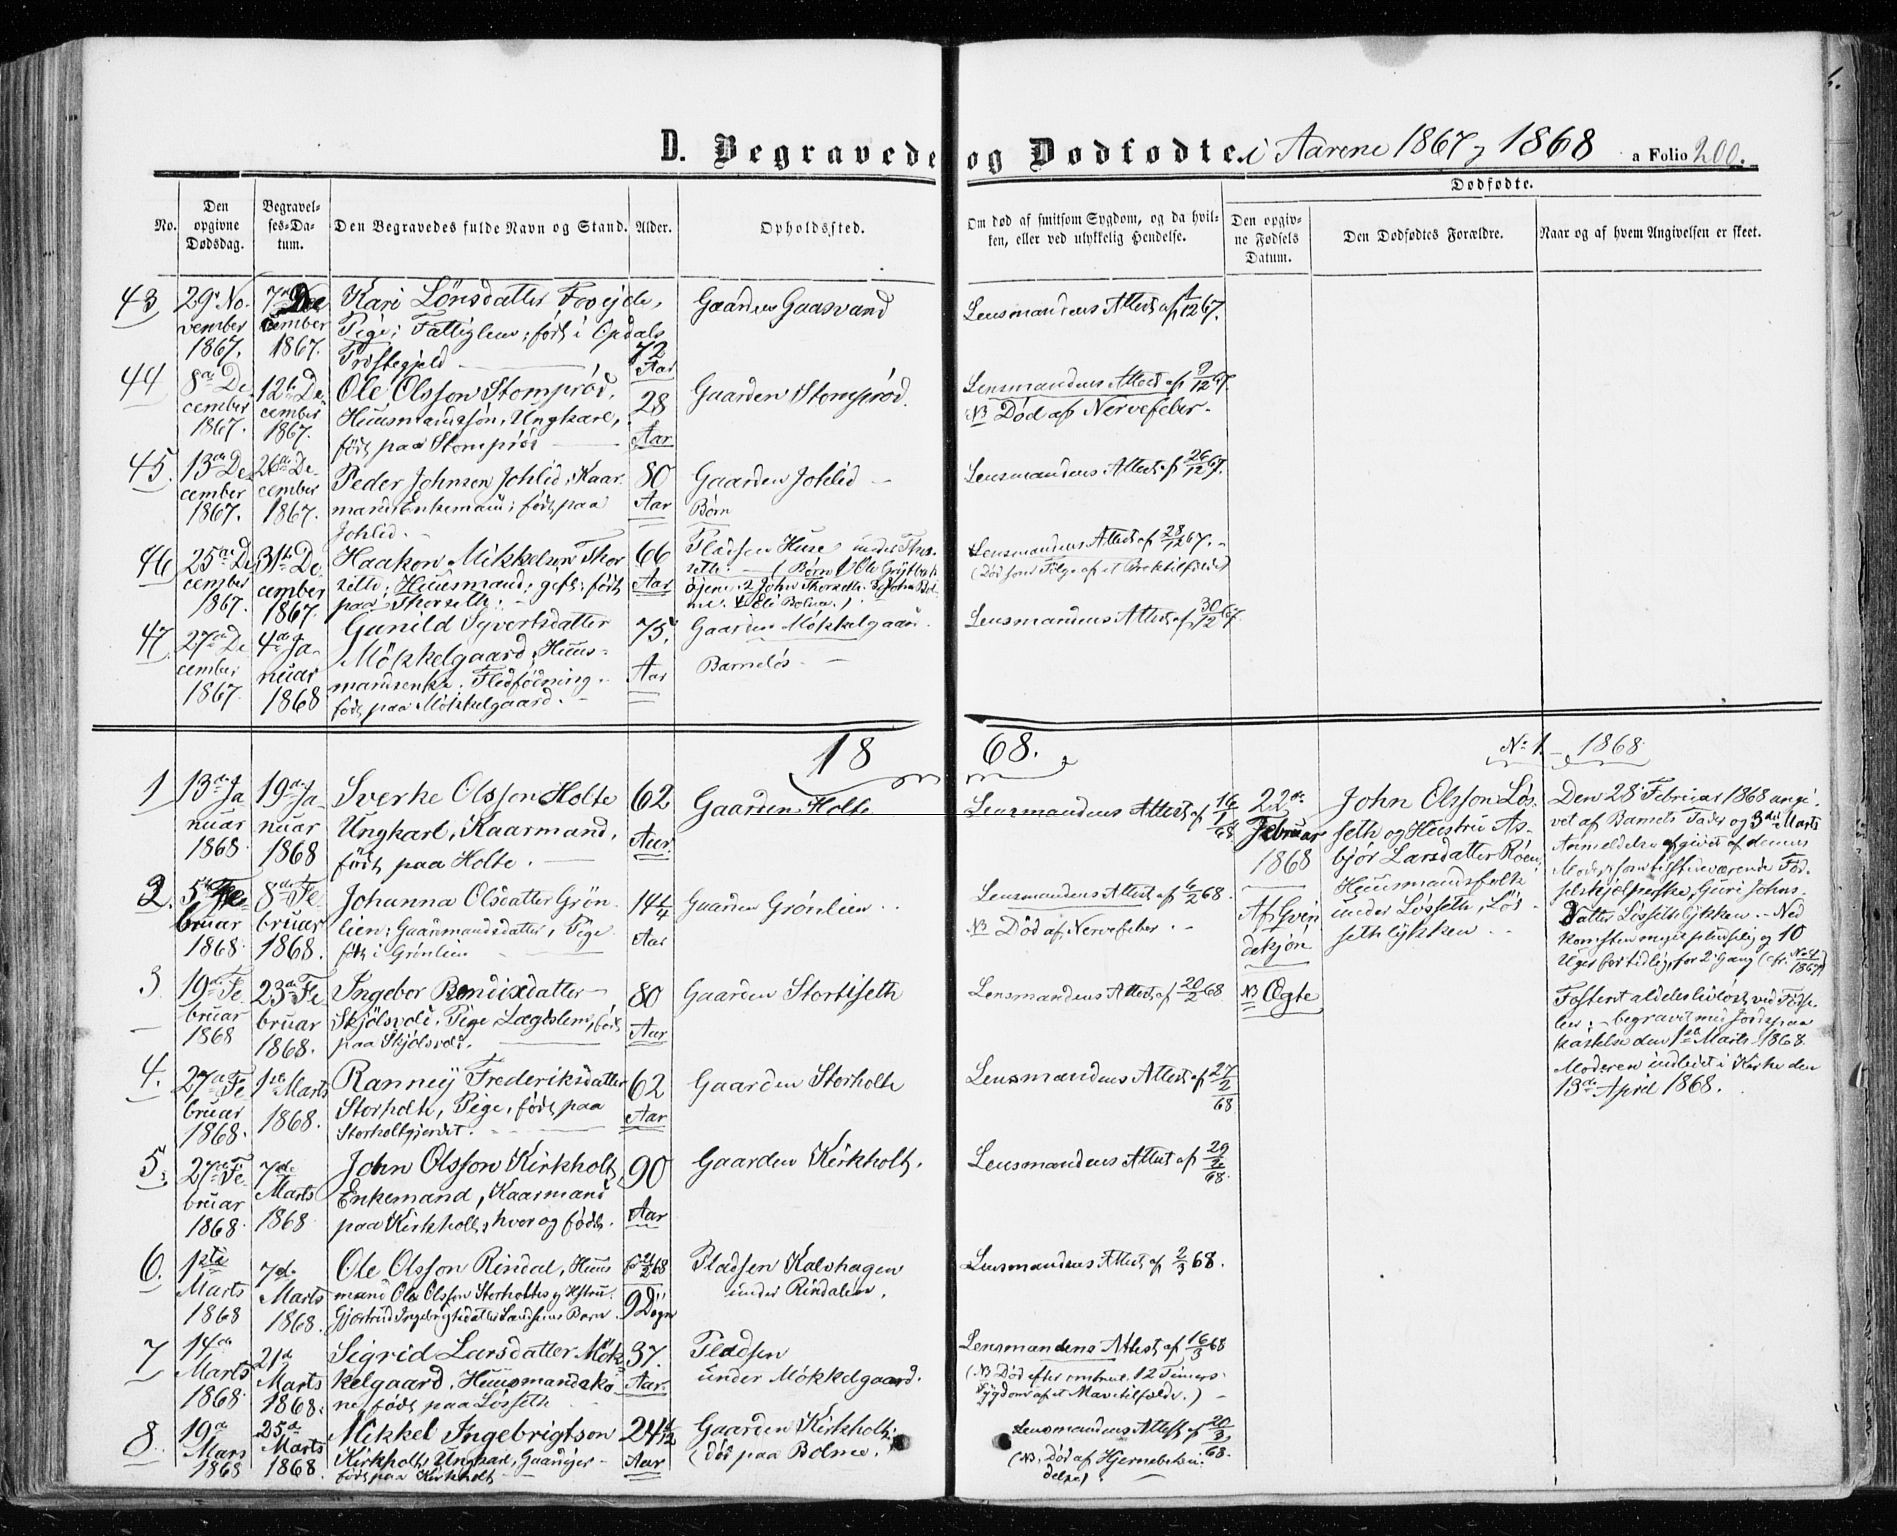 D. Begravede og Dødfødte i Aarene 1867 og 1868 a Folio 200.
No.
Den opgivne Dødsdag.
Begravelses-Datum.
Den Begravedes fulde Navn og Stand.
Alder.
Opholdssted.
Om død af smitsom Sygdom, og da hvilken, eller ved ulykkelig Hendelse.
Dødfødte.
Den opgivne Fødsels Datum.
Den Dødfødtes Forældre.
Naar og af hvem Angivelsen er skeet.
43
29 November 1867.
7de December 1867.
Kari Lönsdatter
Pige; Fattiglem; født i Opdals
Præstegjeld
72 Aar
Gaarden Gaasvand
Lensmandens Attest af 1/12 67.
44
8de December 1867.
12te December 1867.
Ole Olsson Stomprød,
Huusmandssøn, Ungkarl,
født paa Stomprød
28 Aar
Gaarden Stomprød.
Lensmandens Attest af 9/12 67
NB Død af Nervefeber.
45.
13de December 1867.
26de December 1867.
Peder Johnsen Johlid, Kaar
mand Enkemand; født paa
Johlid.
80 Aar
Gaarden Johlid
Børn
Lensmandens Attest af 26/12 67.
46
25de December 1867.
31te December 1867.
Haakon Mikkelsen Thor
seth; Huusmand; gift; født
paa Thorseth.
66 Aar
Pladsen Huse under Thor
seth. (Børn 1 Ole
2 John Thorseth. 3 John Bol
me. 4 Eli Bolme.)
Lensmandens Attest af 28/12 67.
(Død som Følge af et Broktilfælde)
47
27de December 1867.
4de Januar 1868
Gunild Syvertsdatter
Mökkelgaard, Huus-
mandsenke. Fledföring.
født paa Mökkelgaard.
75. Aar
Gaarden Mökkelgaard.
Barnløs.
Lensmandens Attest af 30/12 67.
18 68.
No 1. 1868.
1
13de Januar 1868
19de Januar 1868
Sverke Olsson Holte
Ungkarl, Kaarmand,
født paa Holte.
62 Aar.
Gaarden Holte
Lensmandens Attest af 16/1 68
22de Februar 1868
NB Ægte
John Olsson Løs
seth og Hustru As
bjør Larsdatter Röen,
Huusmandsfolk
under Løsseth, Løs
sethlykken.
Den 28 Februar 1868 angi
vet af Barnets Fader og 3die Marts
Anmeldelse afgivet af dennes
Moder, som tilstedeværende Fød
selshjelperske, Guri Johns
datter Løssethlykken. Ned
komsten meget pludselig og 10
Uger for tidlig, for 2 Gang (cfr. No 4 1867)
Fosteret aldeles livløst ved Fødse
len; begravet med Jordspaa
kastelse den 1ste Marts 1868.
Moderen indledet i Kirke den
13de April 1868.
2.
5te Februar 1868
8de Februar 1868.
Johanna Olsdatter Grön
lien; Gaarmandsdatter, Pige
født i Grönlien
14 1/4 Aar
Gaarden Grönlien
Lensmandens Attest af 6/2 68.
NB Død af Nervefeber.
3
19de Februar 1868
23de Februar 1868.
Ingebor Bendixdatter
Skjölsvold. Pige Lægdslem, født
paa Skjölsvold.
80 Aar
Gaarden Stortiseth
Lensmandens Attest af 20/2 68
4.
27de Februar 1868.
1ste Marts 1868.
Ranney Frederiksdatter
Storholt, Pige, født paa
Storholtgjerdet.
62 Aar
Gaarden Storholte
Lensmandens Attest af 27/2 68
5.
27de Februar 1868
7de Marts 1868
John Olsson Kirkholt,
Enkemand, Kaarmand
paa Kirkholt, hvor og født.
90 Aar
Gaarden Kirkholt.
Lensmandens Attest af 29/2 68.
6.
1ste Marts 1868
7de Marts 1868.
Ole Olsson Rindal, Huus
mand Ole Olsson Storholts og Hustru
Gjertrud Ingebrigtsdatter Barn.
9 Døgn
Pladsen Kalvhagen
under Rindalen.
Lensmandens Attest af 2/3 68.
7
14de Marts 1868
21de Marts 1868.
Sigrid Larsdatter Mök-
kelgaard, Huusmandsko
ne, født paa Løsseth
37. Aar
Pladsen
under Mökkelgaard.
Lensmandens Attest af 16/3 68
(NB Død efter omtrent 12 Timers
Sygdom af et Mavetilfælde.)
8.
19de Mars 1868
25de Marts 1868.
Mikkel Ingebrigtson
Kirkholt, Ungkarl, Gaardejer
født paa Kirkholt
24 Aar
Gaarden Kirkholt;
(død paa Bolme.)
Lensmandens Attest af 20/3 68.
(NB. Død af Hjernebetæn-
delse)